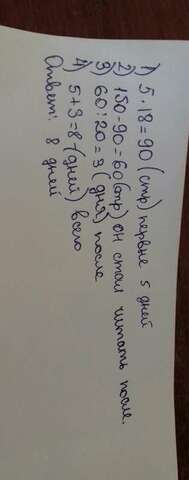 1) 5·18=90 (стр) первые 5 дней
2) 150-90=60 (стр) он стал читать после.
3) 60:20=3 (дня) после
4) 5+3=8 (дней) всего
Ответ: 8 дней